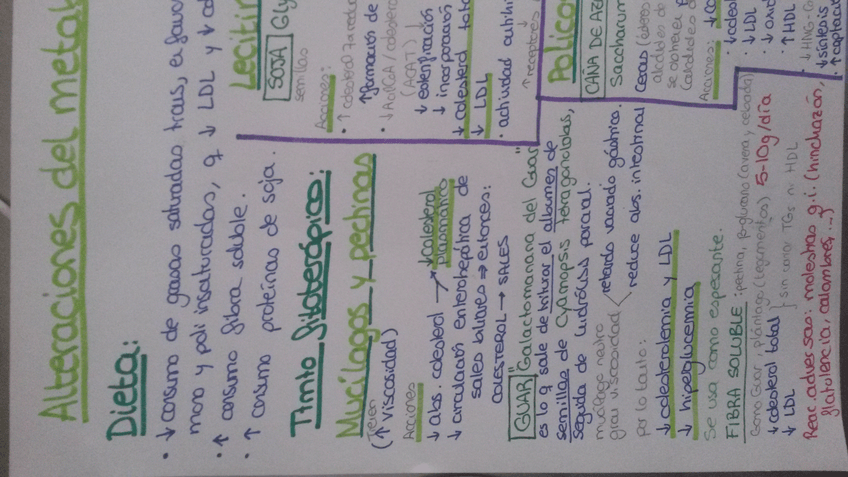 Alteraciones del metab
Dieta:
• ↓ consumo de grasas saturadas trans, es favor
mono y poli insaturadas, q ↓ LDL y ↓
• ↑ consumo fibra soluble.
• ↑ consumo proteínas de soja.
Ttmto fitoterápico:
Mucílagos y pectinas
(↑ viscosidad)
Acciones
↓ abs. colesterol → ↓ colesterol
plasmático
↓ circulación enterohepática de
sales biliares ⇒ entonces:
COLESTEROL → SALES
GUAR "Galactomanana del Guar"
es lo q sale de triturar el albumen de
semillas de Cyamopsis tetragonolobus,
seguida de hidrólisis parcial.
mucílago neutro
gran viscosidad < retarda vaciado gástrico.
reduce abs. intestinal
por lo tanto:
↓ colesterolemia y LDL
↓ hiperglucemia
Se usa como espesante.
FIBRA SOLUBLE: pectina, β-glucano (avena y cebada)
Goma Guar, plántagos (tegumentos) 5-10g/día
↓ colesterol total } sin variar TGs ni HDL
↓ LDL
Reac. adversas: molestias g.i. (hinchazón,
flatulencia, calambres...)
Lecitin
SOJA Gly
semillas
Acciones:
• ↑ colesterol
↑ formación de
• ↓
(ACAT)
↓ esterificación
↓ incorporación
↓ colesterol tota
↓ LDL
• actividad
↑ receptores
Policos
CAÑA DE AZ
Saccharum
Ceras
alcoholes de
se obtienen
Acciones:
• ↓ coleste
• ↓ LDL
• ↑ HDL
• ↓ HMG-Co
↓ síntesis
• ↑ captación